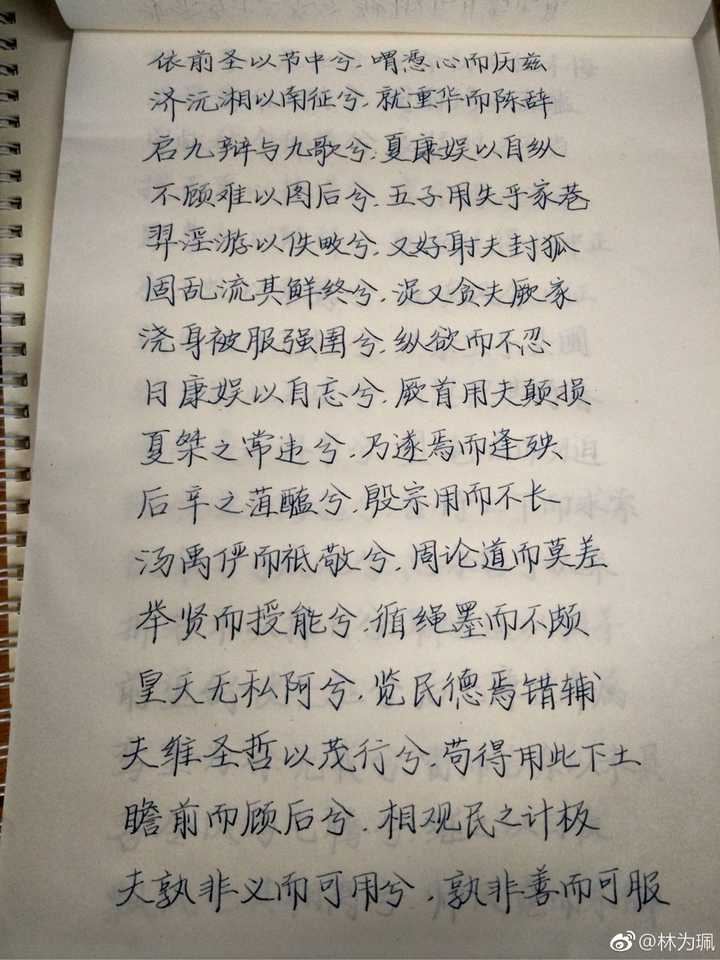 依前圣以节中兮，喟憑心而历兹
济沅湘以南征兮，就重华而陈辞
启九辩与九歌兮，夏康娱以自纵
不顾难以图后兮，五子用失乎家巷
羿淫游以佚畋兮，又好射夫封狐
固乱流其鲜终兮，浞又贪夫厥家
浇身被服强圉兮，纵欲而不忍
日康娱以自忘兮，厥首用夫颠损
夏桀之常违兮，乃遂焉而逢殃
后辛之菹醢兮，殷宗用而不长
汤禹俨而祗敬兮，周论道而莫差
举贤而授能兮，循绳墨而不颇
皇天无私阿兮，览民德焉错辅
夫维圣哲以茂行兮，苟得用此下土
瞻前而顾后兮，相观民之计极
夫孰非义而可用兮，孰非善而可服
@林为珮